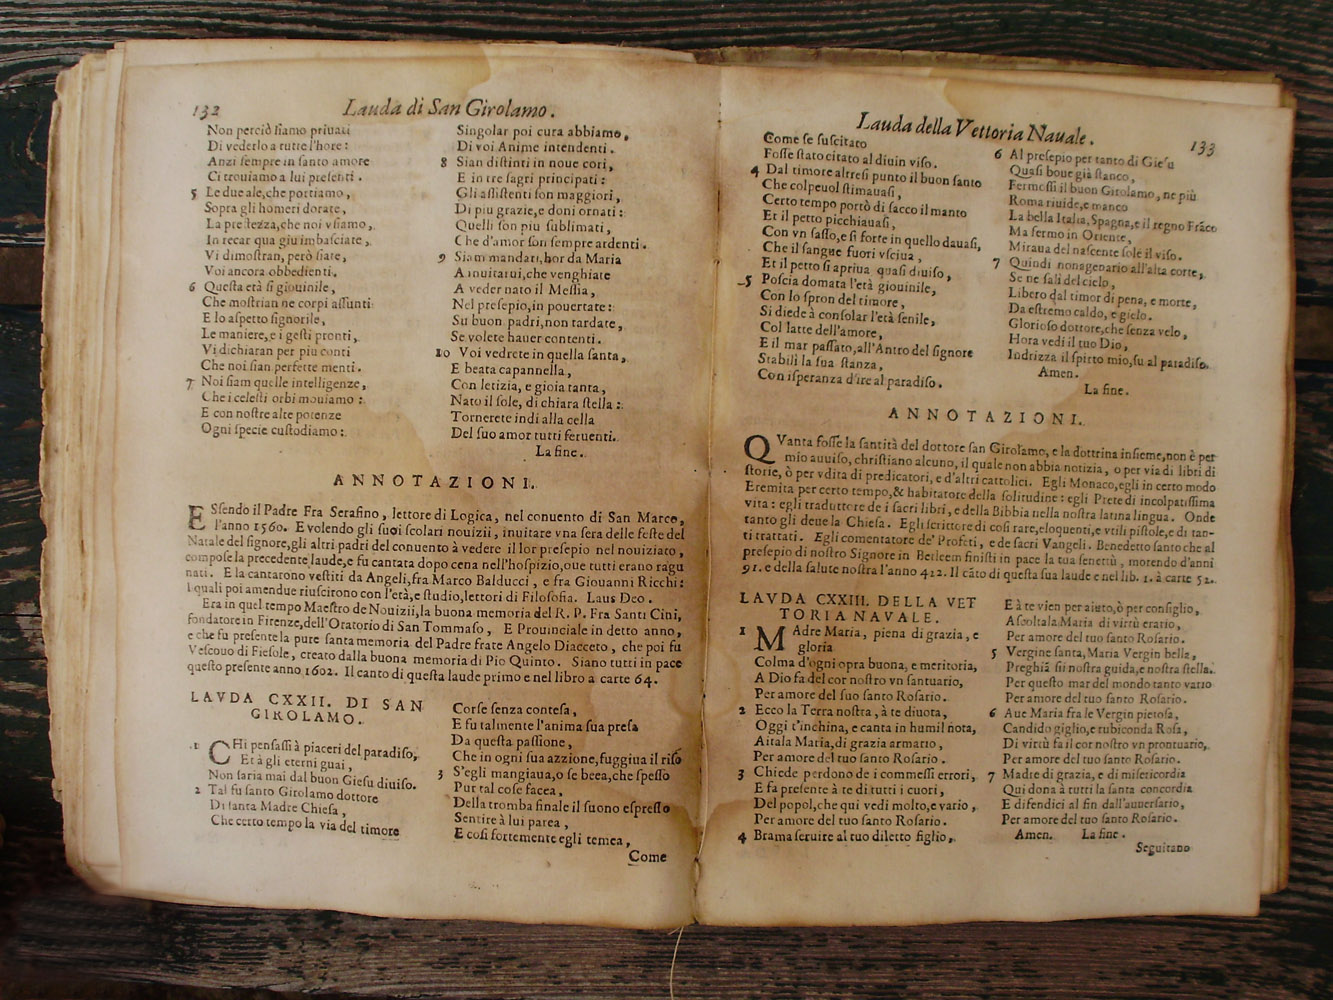 132
Lauda di San Girolamo.
Non perciò siamo priuati
Di vederlo a tutte l'hore:
Anzi sempre in santo amore
Ci trouiamo a lui presenti.
5 Le due ale, che portiamo,
Sopra gli homeri dorate,
La prestezza, che noi vsiamo,
In recar qua giu imbasciate,
Vi dimostran, però siate,
Voi ancora obbedienti.
6 Questa età si giouinile,
Che mostrian ne corpi assunti
E lo aspetto signorile,
Le maniere, e i gesti pronti,
Vi dichiaran per piu conti
Che noi sian perfette menti.
7 Noi siam quelle intelligenze,
Che i celesti orbi mouiamo:
E con nostre alte potenze
Ogni specie custodiamo:
Singolar poi cura abbiamo,
Di voi Anime intendenti.
8 Sian distinti in noue cori,
E in tre sagri principati:
Gli assistenti son maggiori,
Di piu grazie, e doni ornati:
Quelli son piu sublimati,
Che d'amor son sempre ardenti.
9 Siam mandati, hor da Maria
A inuitarui, che venghiate
A veder nato il Messia,
Nel presepio, in pouertate:
Su buon padri, non tardate,
Se volete hauer contenti.
10 Voi vedrete in quella santa,
E beata capannella,
Con letizia, e gioia tanta,
Nato il sole, di chiara stella:
Tornerete indi alla cella
Del suo amor tutti feruenti.
La fine.
ANNOTAZIONI.
ESsendo il Padre Fra Serafino, lettore di Logica, nel conuento di San Marco,
l'anno 1560. E volendo gli suoi scolari nouizii, inuitare vna sera delle feste del
Natale del signore, gli altri padri del conuento à vedere il lor presepio nel nouiziato,
compose la precedente laude, e fu cantata dopo cena nell'hospizio, oue tutti erano ragu
nati. E la cantarono vestiti da Angeli, fra Marco Balducci, e fra Giouanni Ricchi:
i quali poi amendue riuscirono con l'età, e studio, lettori di Filosofia. Laus Deo.
Era in quel tempo Maestro de Nouizii, la buona memoria del R. P. Fra Santi Cini,
fondatore in Firenze, dell'Oratorio di San Tommaso, E Prouinciale in detto anno,
e che fu presente la pure santa memoria del Padre frate Angelo Diacceto, che poi fu
Vescouo di Fiesole, creato dalla buona memoria di Pio Quinto. Siano tutti in pace
questo presente anno 1602. Il canto di questa laude primo e nel libro a carte 64.
LAVDA CXXII. DI SAN
GIROLAMO.
1 CHi pensassi à piaceri del paradiso,
Et à gli eterni guai,
Non saria mai dal buon Giesu diuiso.
2 Tal fu santo Girolamo dottore
Di santa Madre Chiesa,
Che certo tempo la via del timore
Corse senza contesa,
E fu talmente l'anima sua presa
Da questa passione,
Che in ogni sua azzione, fuggiua il riso
3 S'egli mangiaua, o se beea, che spesso
Pur tal cose facea,
Della tromba finale il suono espresso
Sentire à lui parea,
E cosi fortemente egli temea,
Come
Lauda della Vettoria Nauale.
133
Come se suscitato
Fosse stato citato al diuin viso.
4 Dal timore altresi punto il buon santo
Che colpeuol stimauasi,
Certo tempo portò di sacco il manto
Et il petto picchiauasi,
Con vn sasso, e si forte in quello dauasi,
Che il sangue fuori vsciua,
Et il petto si apriua quasi diuiso,
5 Poscia domata l'età giouinile,
Con lo spron del timore,
Si diede à consolar l'età senile,
Col latte dell'amore,
E il mar passato, all'Antro del signore
Stabilì la sua stanza,
Con isperanza d'ire al paradiso.
6 Al presepio per tanto di Giesu
Quasi boue già stanco,
Fermossi il buon Girolamo, ne più
Roma riuide, e manco
La bella Italia, Spagna, e il regno Frāco
Ma fermo in Oriente,
Miraua del nascente sole il viso.
7 Quindi nonagenario all'alta corte,
Se ne salì del cielo,
Libero dal timor di pena, e morte,
Da estremo caldo, e gielo.
Glorioso dottore, che senza velo,
Hora vedi il tuo Dio,
Indrizza il spirto mio, su al paradiso.
Amen.
La fine.
ANNOTAZIONI.
QVanta fosse la santità del dottore san Girolamo, e la dottrina insieme, non è per
mio auuiso, christiano alcuno, il quale non abbia notizia, o per via di libri di
storie, ò per vdita di predicatori, e d'altri cattolici. Egli Monaco, egli in certo modo
Eremita per certo tempo, & habitatore della solitudine: egli Prete di incolpatissima
vita: egli traduttore de i sacri libri, e della Bibbia nella nostra latina lingua. Onde
tanto gli deue la Chiesa. Egli scrittore di cosi rare, eloquenti, e vtili pistole, e di tan-
ti trattati. Egli comentatore de' Profeti, e de sacri Vangeli. Benedetto santo che al
presepio di nostro Signore in Betleem finisti in pace la tua senettù, morendo d'anni
91. e della salute nostra l'anno 422. Il cāto di questa sua laude e nel lib. 1. à carte 52.
LAVDA CXXIII. DELLA VET
TORIA NAVALE.
1 MAdre Maria, piena di grazia, e
gloria
Colma d'ogni opra buona, e meritoria,
A Dio fa del cor nostro vn santuario,
Per amore del suo santo Rosario.
2 Ecco la Terra nostra, à te diuota,
Oggi t'inchina, e canta in humil nota,
Aitala Maria, di grazia armario,
Per amore del tuo santo Rosario.
3 Chiede perdono de i commessi errori,
E fa presente à te di tutti i cuori,
Del popol, che qui vedi molto, e vario,
Per amore del tuo santo Rosario.
4 Brama seruire al tuo diletto figlio,
E à te vien per aiuto, ò per consiglio,
Ascoltala Maria di virtù erario,
Per amore del tuo santo Rosario.
5 Vergine santa, Maria Vergin bella,
Preghiā sii nostra guida, e nostra stella.
Per questo mar del mondo tanto vario
Per amore del tuo santo Rosario.
6 Aue Maria fra le Vergin pietosa,
Candido giglio, e rubiconda Rosa,
Di virtù fa il cor nostro vn prontuario,
Per amore del tuo santo Rosario.
7 Madre di grazia, e di misericordia
Qui dona à tutti la santa concordia
E difendici al fin dall'auuersario,
Per amore del tuo santo Rosario.
Amen. La fine.
Seguitano